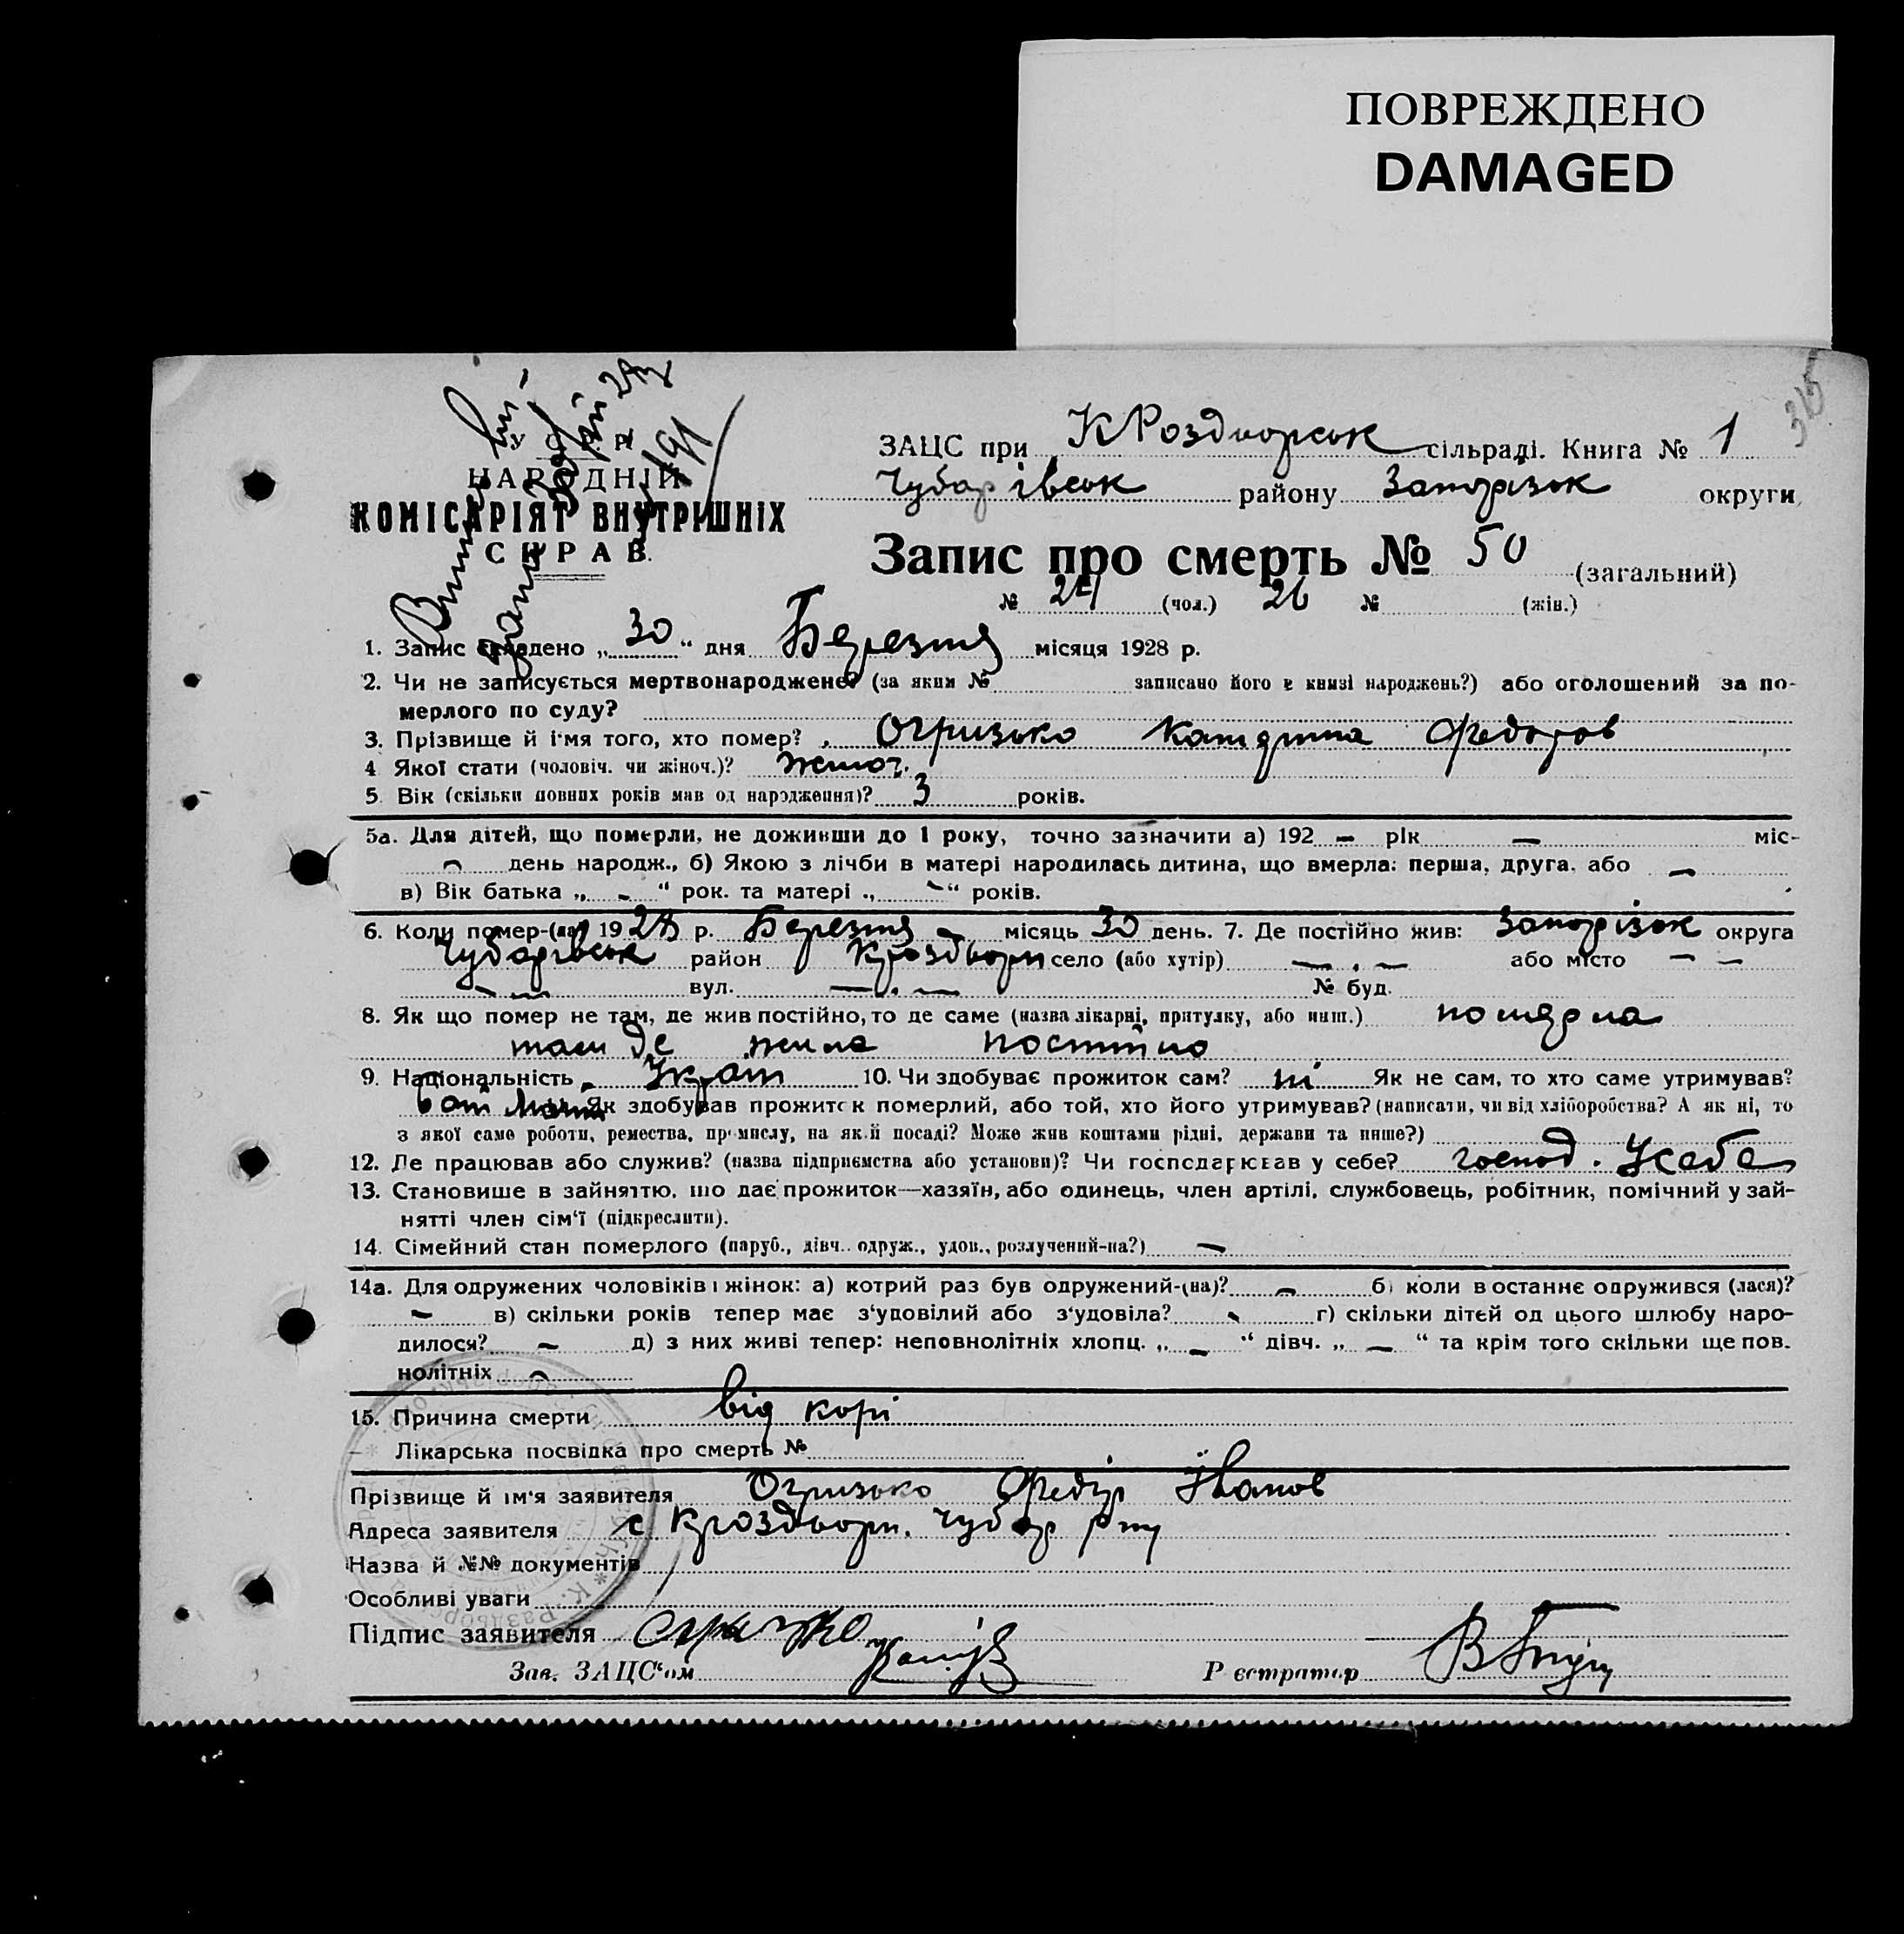 ПОВРЕЖДЕНО
DAMAGED
315
У С Р Р
НАРОДНІЙ
КОМІСАРІЯТ ВНУТРІШНІХ
СПРАВ.
ЗАЦС при КРоздворськ сільраді. Книга № 1
Чубарівськ району Запорізьк округи
Запис про смерть № 50 (загальний)
№ 24 (чол.) 26 № (жін.)
1. Запис складено „ 30 “ дня Березня місяця 1928 р.
2. Чи не записується мертвонароджене? (за яким № записано його в книзі народжень?) або оголошений за по-
мерлого по суду?
3. Прізвище й ім'я того, хто помер? Огризько Катерина Федоров
4 Якої стати (чоловіч. чи жіноч.)? жіноч.
5. Вік (скільки повних років мав од народження)? 3 років.
5а. Для дітей, що померли, не доживши до 1 року, точно зазначити а) 192 – рік – міс-
– день народж., б) Якою з лічби в матері народилась дитина, що вмерла: перша, друга, або –
в) Вік батька „ – “ рок. та матері „ – “ років.
6. Коли помер-(ла) 1928 р. Березня – місяць 30 день. 7. Де постійно жив: Запорізьк округа
Чубарівськ район Кроздвори село (або хутір) – . – або місто – –
– – вул. – . – № буд.
8. Як що помер не там, де жив постійно, то де саме (назва лікарні, притулку, або инш.) померла
там де жила постійно
9. Національність Україн 10. Чи здобуває прожиток сам? ні Як не сам, то хто саме утримував?
Бат Мати Як здобував прожиток померлий, або той, хто його утримував? (написати, чи від хліборобства? А як ні, то
з якої саме роботи, ремества, промислу, на якій посаді? Може жив коштами рідні, держави та инше?)
12. Де працював або служив? (назва підприємства або установи)? Чи господарював у себе? господ. Усебе
13. Становище в зайняттю, що дає прожиток—хазяїн, або одинець, член артілі, службовець, робітник, помічний у зай-
нятті член сім'ї (підкреслити).
14. Сімейний стан померлого (паруб., дівч.. одруж., удов., розлучений-на?) –
14а. Для одружених чоловіків і жінок: а) котрий раз був одружений-(на)? – б) коли в останнє одружився (лася)?
– в) скільки років тепер має з'удовілий або з'удовіла? – г) скільки дітей од цього шлюбу наро-
дилося? – д) з них живі тепер: неповнолітніх хлопц. „ – “ дівч. „ – “ та крім того скільки ще пов.
нолітніх –
15. Причина смерти від корі
Лікарська посвідка про смерть №
Прізвище й ім'я заявителя Огризько Федір Іванов
Адреса заявителя с Кроздвори. Чубар р ну
Назва й №№ документів
Особливі уваги
Підпис заявителя Огризко
Зав. ЗАЦС'ом
Реєстратор